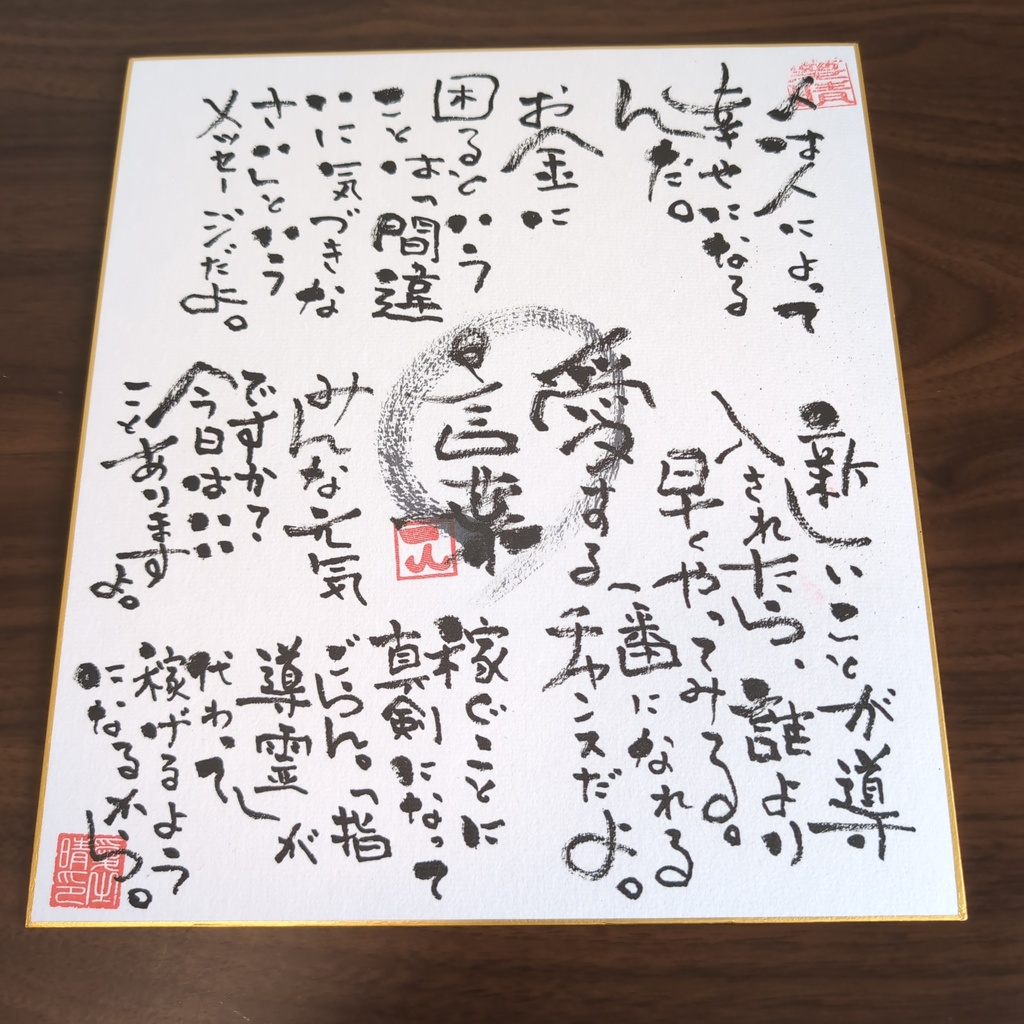 人は人によって
幸せになる
んだ。
お金に
困るという
ことは「間違
いに気づきな
さい」という
メッセージだよ。
愛する
言葉
新しいことが導
入されたら、誰より
早くやってみる。
一番になれる
チャンスだよ。
みんな元気
ですか?
今日はいい
ことありますよ。
稼ぐことに
真剣になって
ごらん。「指
導霊が
代わって」
稼げるよう
になるから。
一人